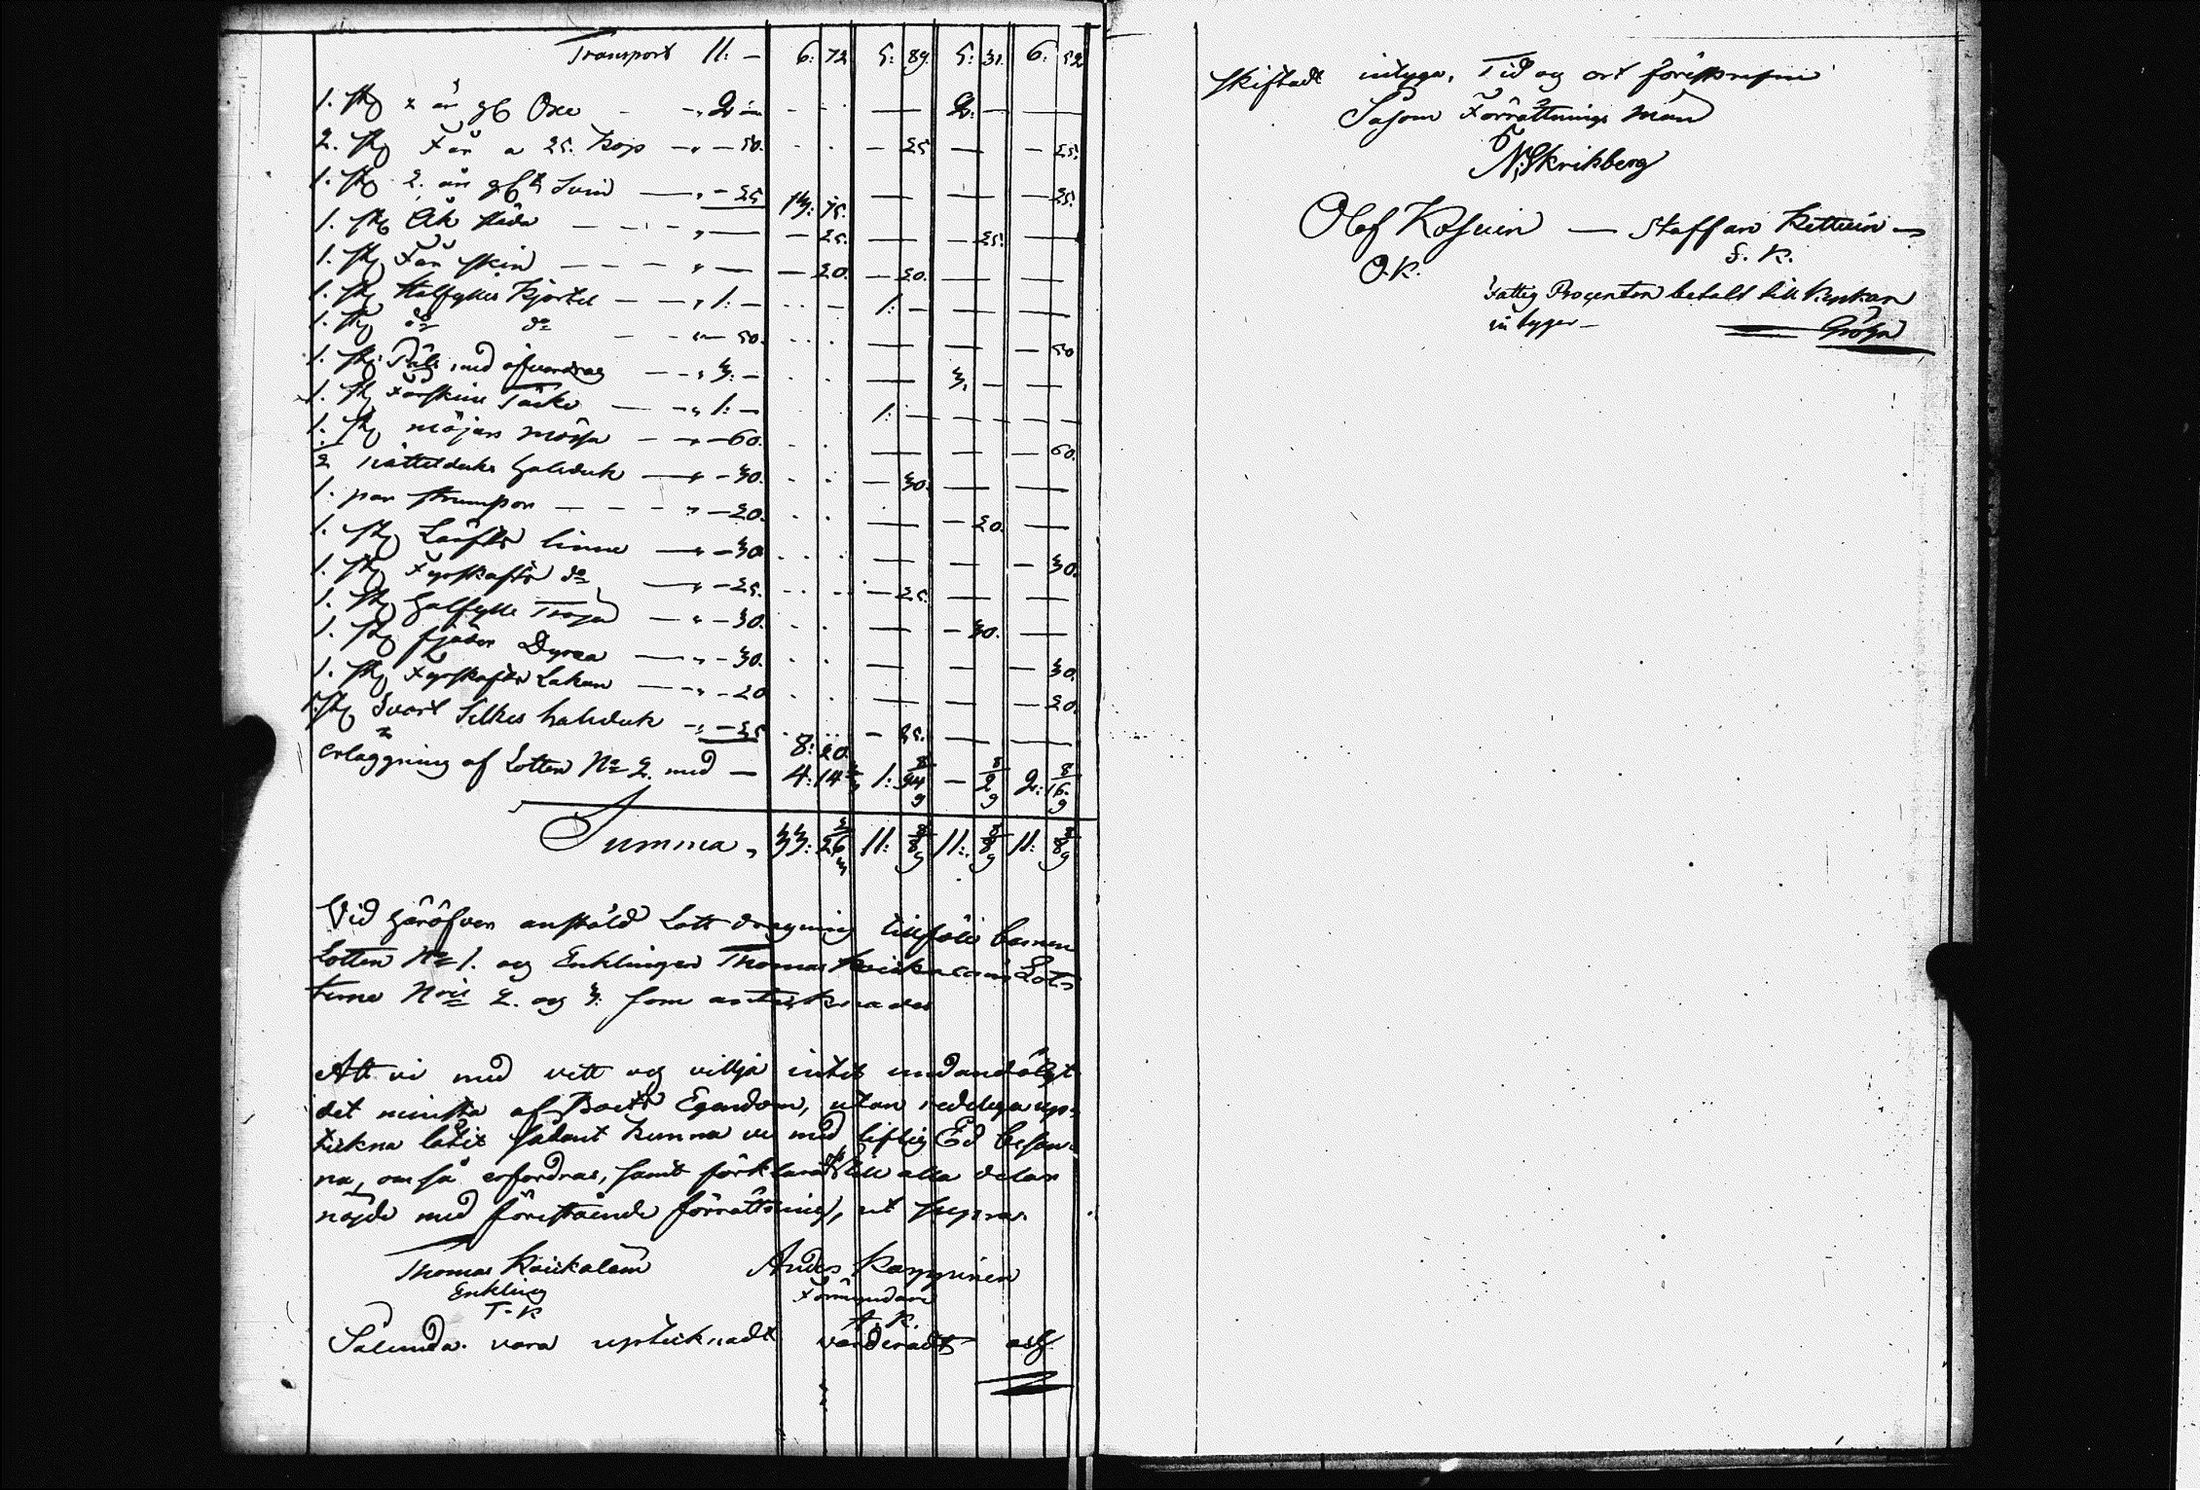 Transport 11: — 6: 72 5: 89. 5: 31. 6: 52
1. st. x år gl Oxe - „ 2: — - - — 2: — —
2. st. Får a 25. Kop - „ — 50. - - — 25 — — 25.
1. st. 2. års gl.t Svin — „ — 25 13: 75. — — — 25.
1. st. Åk släda - - - „ — — 25. — — 25. —
1. st. Får skin - - - „ — — 20. — 20. — —
1. st. Halfylle Kjortel - - „ 1: — - - 1: — — —
1. st. do do - - „ — 50. - - — — — 50
1. st. Päls med öfverdrag - - „ 3: — - - — 3. — —
1. st. Fårskins Täcke - - „ 1: — - - 1: — — —
1. st. möjars mössa - - „ — 60. - - — — — 60.
2 Nättelduks halsduk — „ — 30. - - — 30. — —
1. par strumpor - - - „ — 20. - - — — 20. —
1. st. Lärfts linne — „ — 30 - - — — — 30.
1. st. Fyrskafts do — „ — 25. - - — 25. — —
1. st. halfylle Tröja - „ — 30. - - — — 30. —
1. st. fjäder Dyna — „ — 30. - - — — — 30.
1. st. Fyrskafts Lakan — „ — 20 - - — — — 20.
1. st. Svart Silkes halsduk - „ — 25 8: 20. — 25. — —
erläggning af Lotten No 2. med — 4: 14 2/3 1: 94 8/9 — 2 8/9 2: 16 8/9
Summa, 33: 26 2/3 11: 8 8/9 11: 8 8/9 11: 8 8/9
Vid häröfver anstäld Lott dragning tillföll barnen
Lotten No 1. og Enklingen Thomas Kaikalain Lot-
terne N:ris 2. og 3. som antecknades
Att vi med vett og vilja intet undandölgt
det minsta af Boets Egendom, utan redeliga up-
tekna låtit sådant kunna vi med liflig Ed besan-
na, om så erfordras, samt förklarat till alla delar
nöjde med förestående förrättning, ut supra.
Thomas Kaikalain Anders Karppinen
Enkling Förmyndare
T. K A. K.
Sålunda vara uptecknadt värderadt och
skiftadt intyga, Tid og ort föreskrefne
Såsom Förrättnings män
N. Skrikberg
Olof Kosuin — Staffan Kettuin
O. K. S. K.
Fattig Procenten betalt till Kyrkan
in tyger —